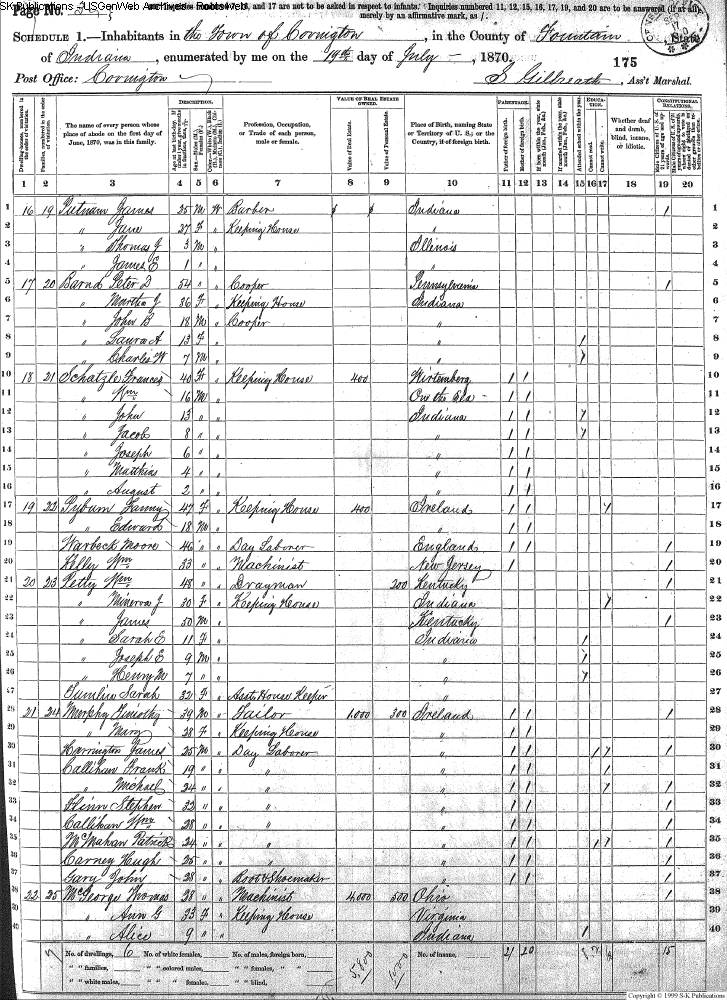 SK Publications - USGenWeb Archives - Roots
Page No. Inquiries numbered 7, 16, and 17 are not to be asked in respect to infants. Inquiries numbered 11, 12, 15, 16, 17, 19, and 20 are to be answered (if at all) merely by an affirmative mark, as /.
SCHEDULE 1.—Inhabitants in the Town of Covington, in the County of Fountain, State
of Indiana, enumerated by me on the 19th day of July, 1870. 175
Post Office: Covington S Gilbreath, Ass't Marshal.
Dwelling-houses, numbered in the order of visitation.
Families, numbered in the order of visitation.
The name of every person whose place of abode on the first day of June, 1870, was in this family.
DESCRIPTION.
Profession, Occupation, or Trade of each person, male or female.
VALUE OF REAL ESTATE OWNED.
Value of Real Estate.
Place of Birth, naming State or Territory of U. S.; or the Country, if of foreign birth.
PARENTAGE.
Father of foreign birth.
Mother of foreign birth.
EDUCATION.
Attended school within the year.
Cannot read.
Cannot write.
Whether deaf and dumb, blind, insane, or idiotic.
CONSTITUTIONAL RELATIONS.
1 2 3 4 5 6 7 8 9 10 11 12 13 14 15 16 17 18 19 20
1 16 19 Putnam James 25 M W Barber $ $ Indiana / 1
2 " Jane 27 F " Keeping House " 2
3 " Thomas J 3 M " Illinois 3
4 " James E 1 " " " 4
5 17 20 Barnd Peter D 54 " " Cooper Pennsylvania / 5
6 " Martha J 36 F " Keeping House Indiana 6
7 " John B 18 M " Cooper " 7
8 " Laura A 13 F " " / 8
9 " Charles W 7 M " " / 9
10 18 21 Schatzle Frances 40 F " Keeping House 400 Wirtemberg / / 10
11 " Wm 16 M " On the Sea / / 11
12 " John 13 " " Indiana / / / 12
13 " Jacob 8 " " " / / / 13
14 " Joseph 6 " " " / / 14
15 " Matthias 4 " " " / / 15
16 " August 2 " " " / / 16
17 19 22 Pyburn Fanny 47 F " Keeping House 400 Ireland / / / 17
18 " Edward 18 M " " / / 18
19 Warbeck Moore 46 " " Day Laborer England / / / 19
20 Kelly Wm 33 " " Machinist New Jersey / / 20
21 20 23 Petty Wm 48 " " Drayman 200 Kentucky / 21
22 " Minerva J 30 F " Keeping House Indiana / 22
23 " James 50 M " Kentucky / 23
24 " Sarah E 11 F " Indiana / 24
25 " Joseph E 9 M " " / 25
26 " Henry M 7 " " " / 26
27 Tumlin Sarah 32 F " Asst. House Keeper " 27
28 21 24 Murphy Timothy 39 M " Tailor 1,000 300 Ireland / / / 28
29 " Mary 28 F " Keeping House " / / 29
30 Harrington James 25 M " Day Laborer " / / / / / 30
31 Callihan Frank 19 " " " " / / / 31
32 " Michael 24 " " " " / / / / 32
33 Flinn Stephen 32 " " " " / / / 33
34 Callihan Wm 28 " " " " / / / 34
35 McMahan Patrick 24 " " " " / / / / / 35
36 Carney Hugh 25 " " " " / / / 36
37 Gary John 28 " " Boot & Shoemaker " / / / 37
38 22 25 McGeorge Thomas 28 " " Machinist 4,000 500 Ohio / 38
39 " Ann G 33 F " Keeping House Virginia 39
40 " Alice 9 " " Indiana / 40
No. of dwellings, 6 No. of white females, No. of males, foreign born, No. of insane, 21 20 15
" " families, " " colored males, " " females, " " 5,800 1000
" " white males, " " " females, " " blind,
Copyright © 1999 S-K Publications